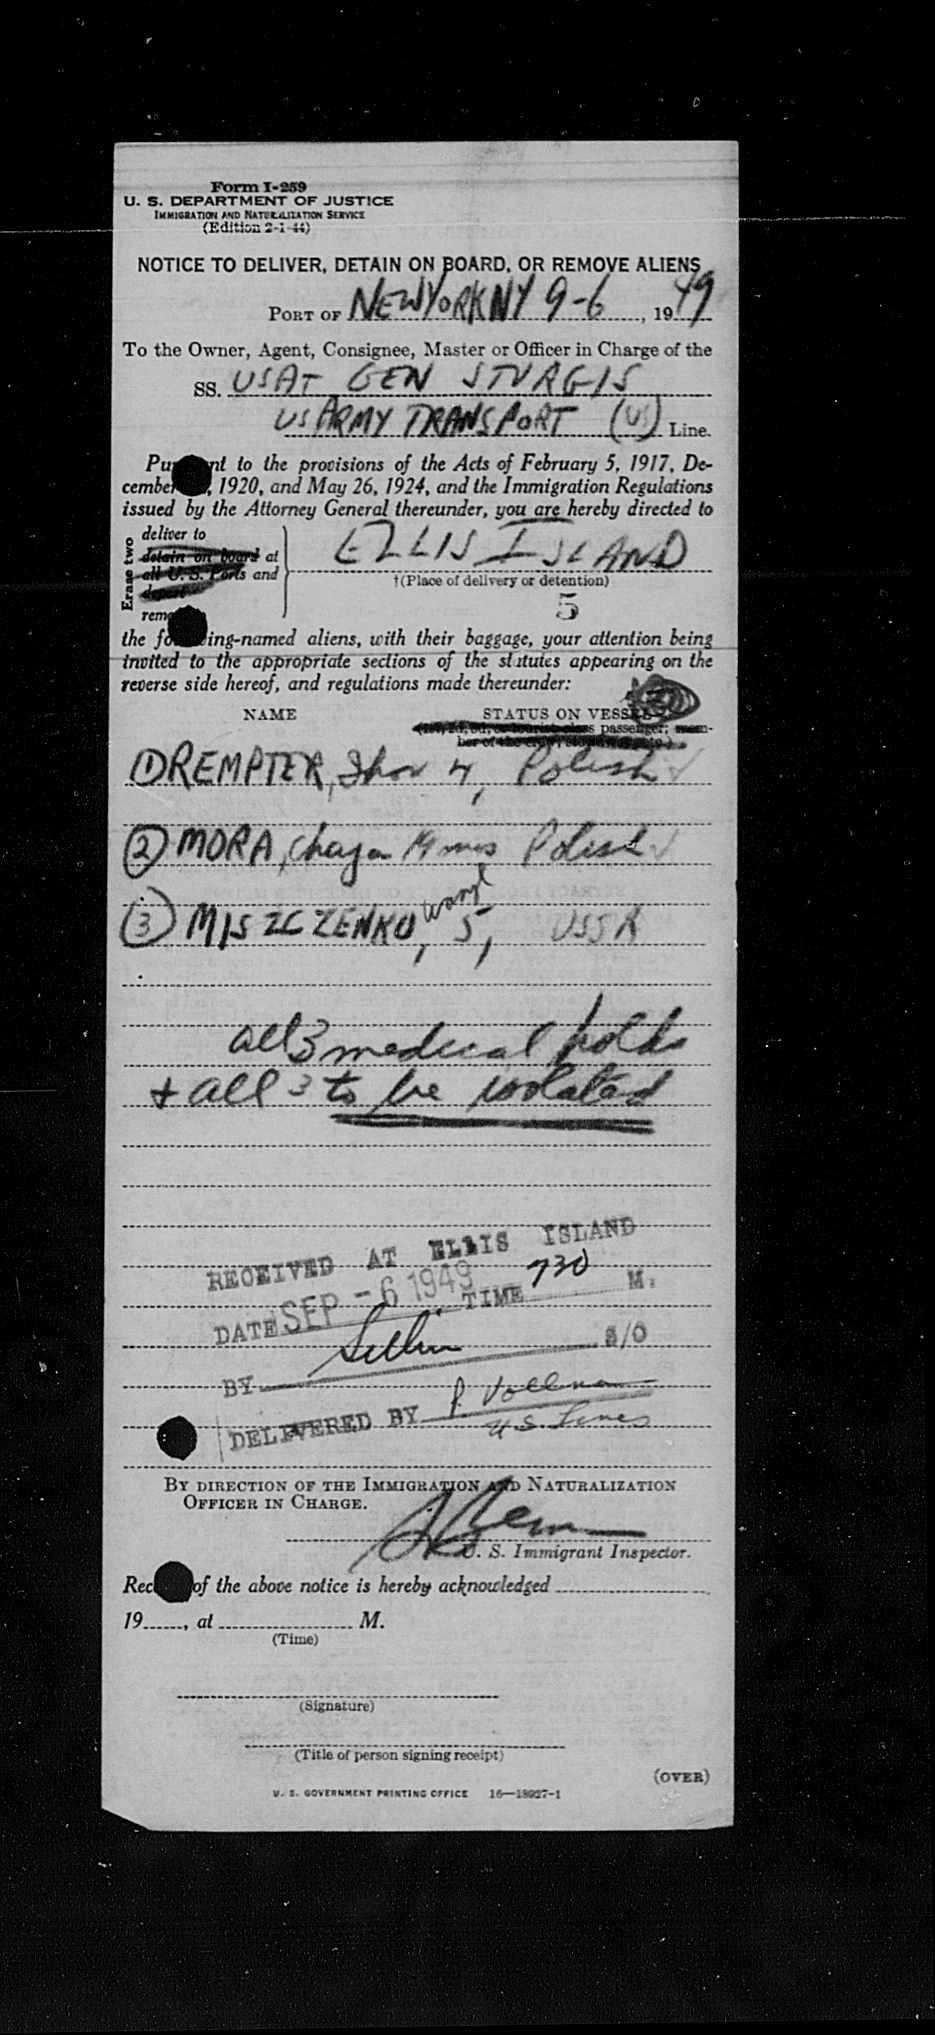 Form I-259
U. S. DEPARTMENT OF JUSTICE
IMMIGRATION AND NATURALIZATION SERVICE
(Edition 2-1-44)
NOTICE TO DELIVER, DETAIN ON BOARD, OR REMOVE ALIENS
PORT OF NEWYORK NY 9-6, 1949
To the Owner, Agent, Consignee, Master or Officer in Charge of the
SS. USAT GEN STURGIS
US ARMY TRANSPORT (US) Line.
Pursuant to the provisions of the Acts of February 5, 1917, De-
cember , 1920, and May 26, 1924, and the Immigration Regulations
issued by the Attorney General thereunder, you are hereby directed to
Erase two
deliver to
detain on board at
all U. S. Ports and
deport
remove
ELLIS ISLAND
†(Place of delivery or detention)
5
the following-named aliens, with their baggage, your attention being
invited to the appropriate sections of the statutes appearing on the
reverse side hereof, and regulations made thereunder:
NAME STATUS ON VESSEL
passenger;
① DREMPTER, 4, Polish ✓
② MORA, Polish ✓
③ MISZCZENKO, 5, USSR
all 3 medical holds
+ all 3 to be isolated
RECEIVED AT ELLIS ISLAND
DATE SEP -6 1949 TIME 730 M.
BY S/O
DELIVERED BY P. Vollman
US Lines
BY DIRECTION OF THE IMMIGRATION AND NATURALIZATION
OFFICER IN CHARGE.
U. S. Immigrant Inspector.
Receipt of the above notice is hereby acknowledged
19......, at M.
(Time)
(Signature)
(Title of person signing receipt)
(OVER)
U. S. GOVERNMENT PRINTING OFFICE 16—18927-1